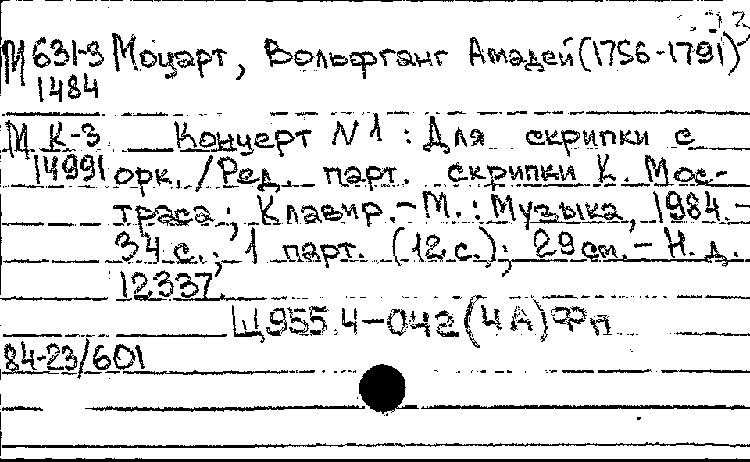 М 631-3 Моцарт, Вольфганг Амадей (1756-1791)
1484
М К-3 Концерт N 1 : Для скрипки с
14991 орк. / Ред. парт. скрипки К. Мос-
траса; Клавир. - М. : Музыка, 1984. -
34 с.; 1 парт. (12 с.); 29 см. - Н. д.
12337.
Щ955.4-042(4А)Фп
84-23/601